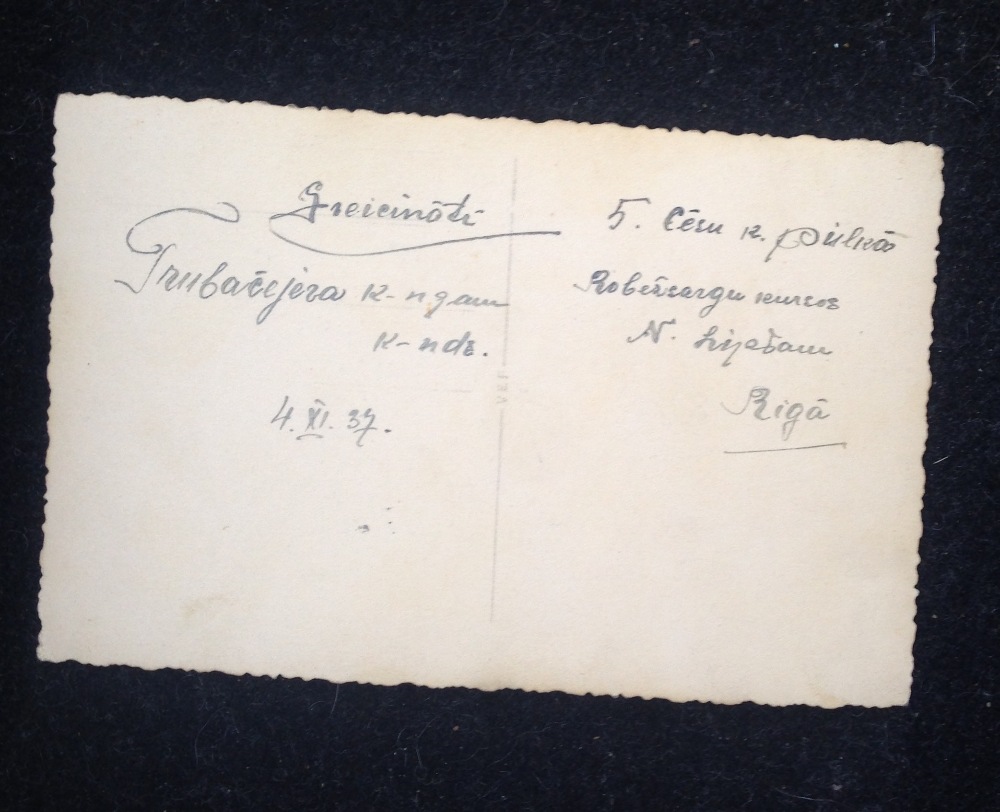 Greicināti
Trubačejeva K-ngam
K-ndz.
4. XI. 37.
VEF
5. Cēsu k. pulkā
Robežsargu kursos
N.
Rīgā